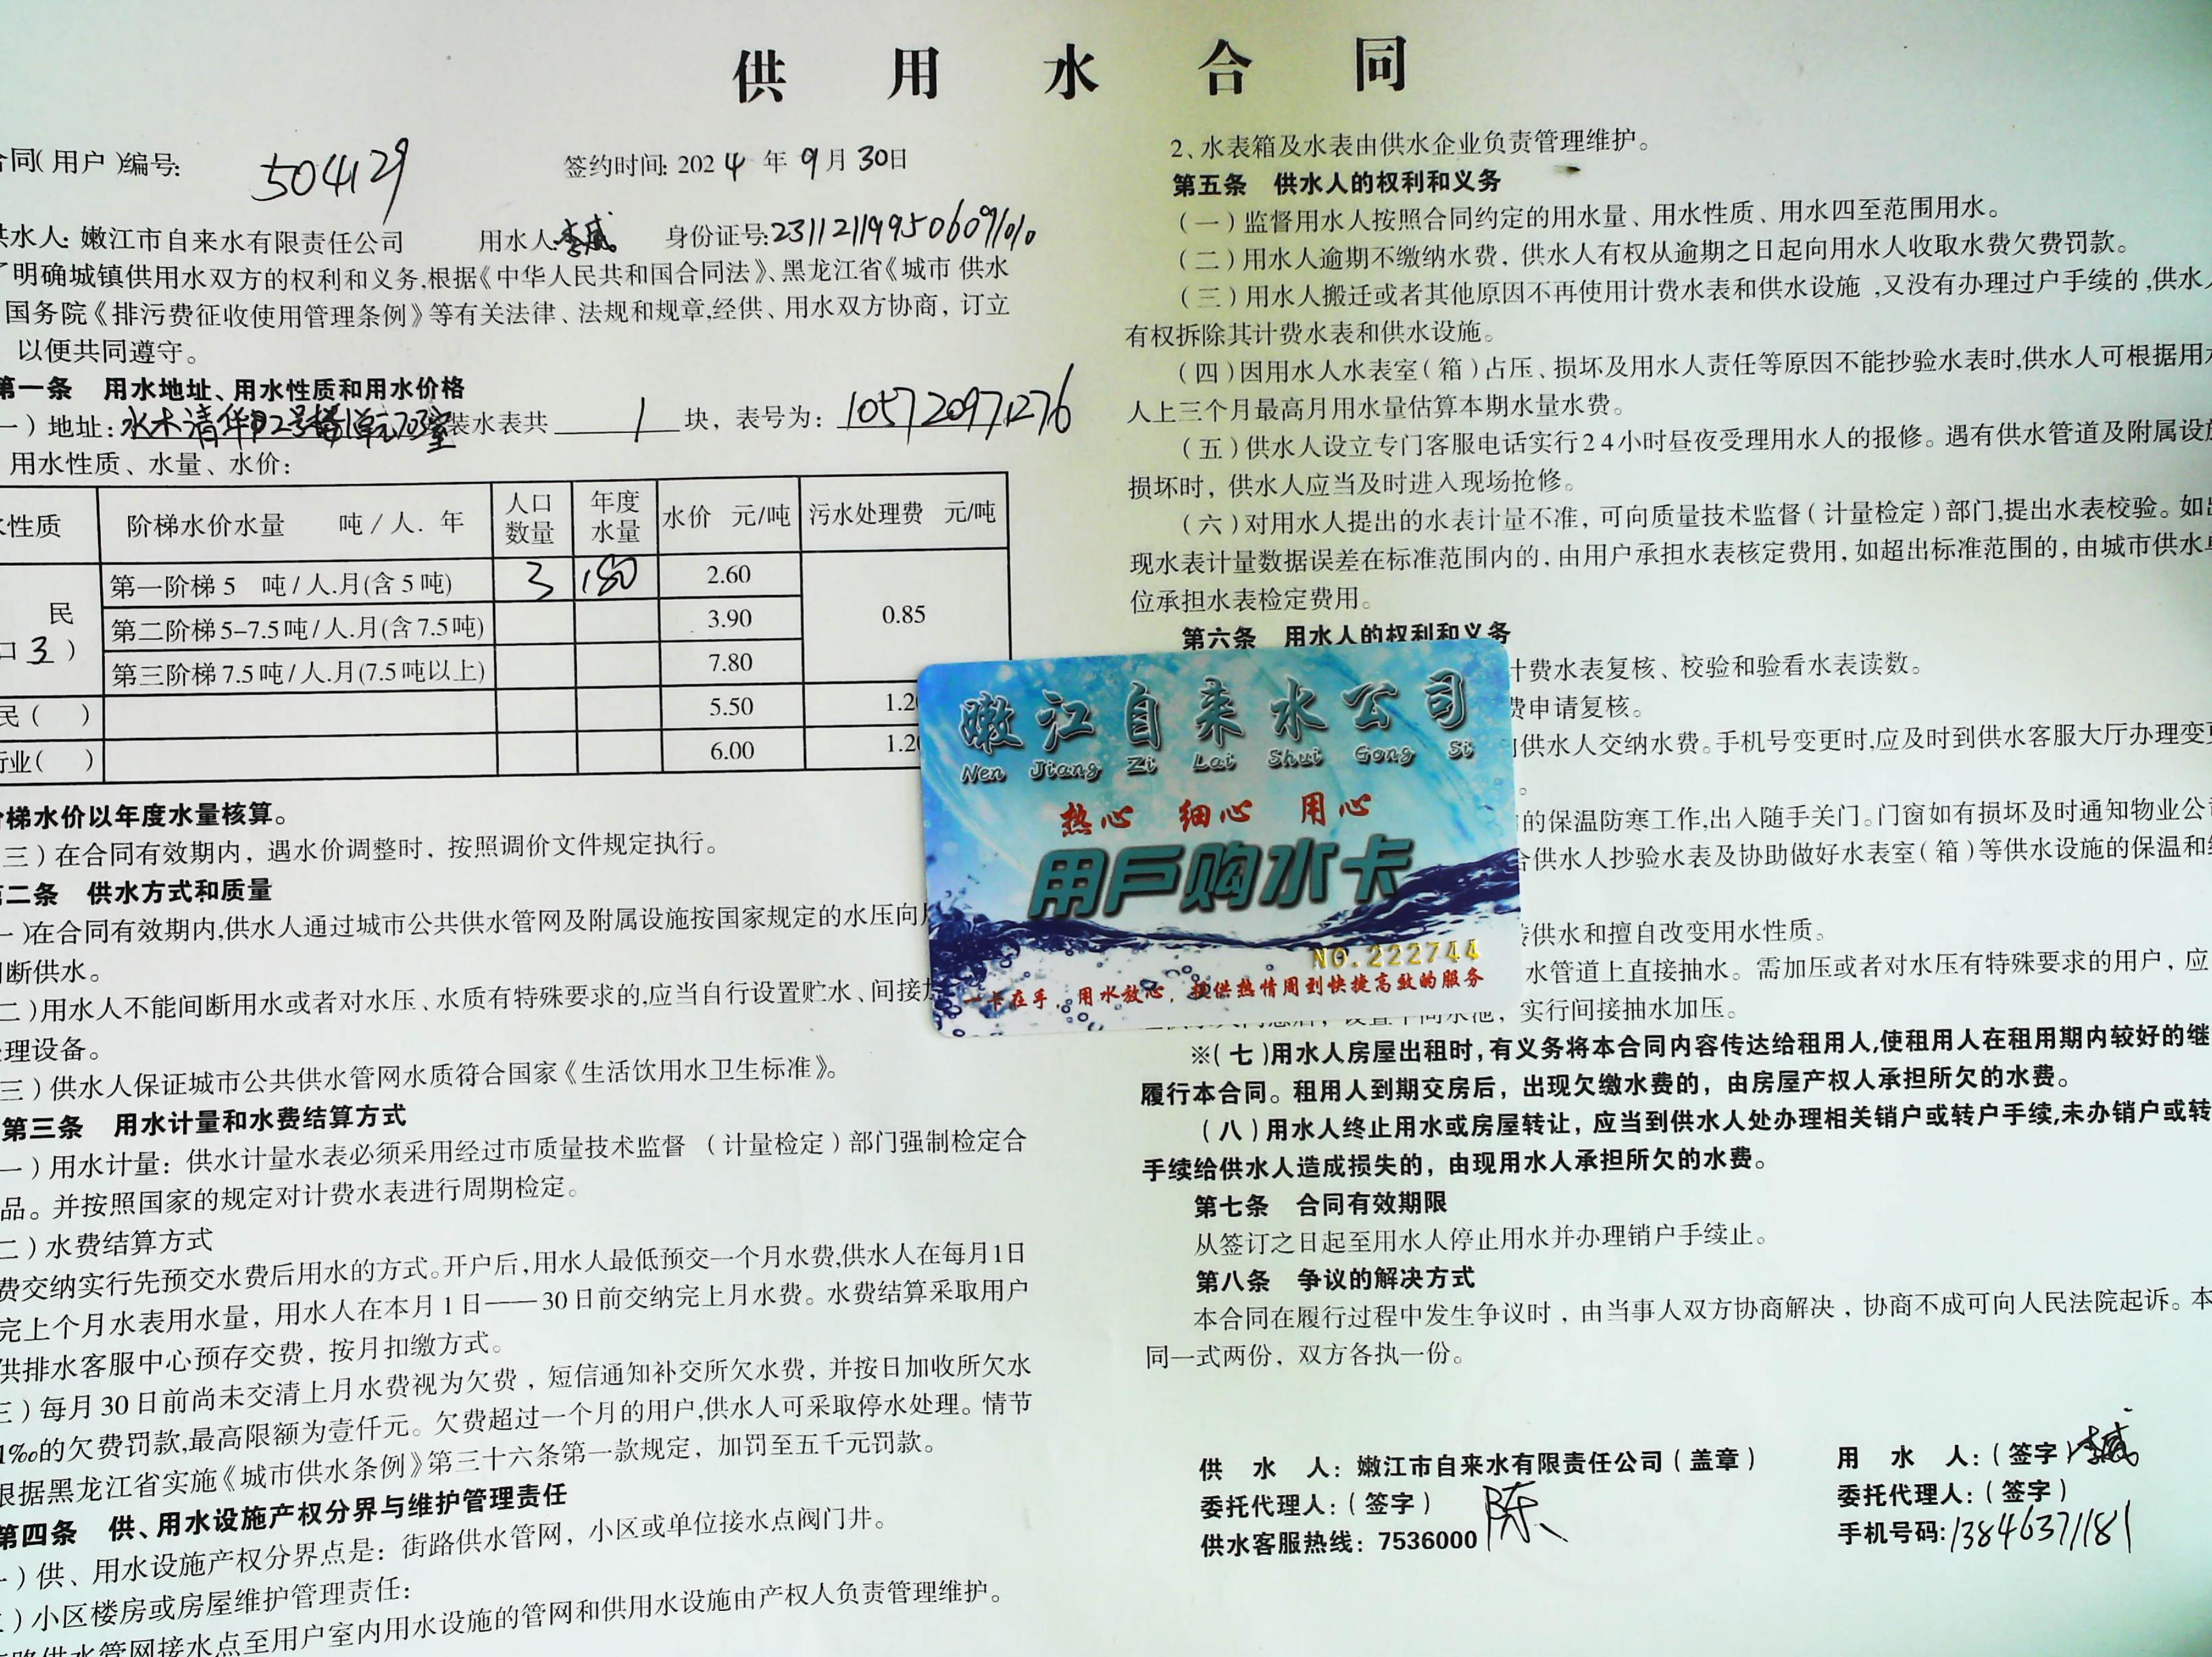 供用水合同
合同(用户)编号: 504129 签约时间: 2024年9月30日
供水人: 嫩江市自来水有限责任公司 用水人 李威 身份证号:
了明确城镇供用水双方的权利和义务,根据《中华人民共和国合同法》、黑龙江省《城市 供水
国务院《排污费征收使用管理条例》等有关法律、法规和规章,经供、用水双方协商，订立
以便共同遵守。
第一条 用水地址、用水性质和用水价格
一）地址: 水木清华 2号楼1单元703室 装水表共 1 块，表号为: 10572097276
用水性质、水量、水价:
水性质 阶梯水价水量 吨/人.年 人口数量 年度水量 水价 元/吨 污水处理费 元/吨
民 口3) 第一阶梯 5 吨/人.月(含5吨) 3 180 2.60 0.85
第二阶梯5-7.5吨/人.月(含7.5吨) 3.90
第三阶梯7.5吨/人.月(7.5吨以上) 7.80
民( ) 5.50 1.20
行业( ) 6.00 1.20
阶梯水价以年度水量核算。
三）在合同有效期内，遇水价调整时，按照调价文件规定执行。
第二条 供水方式和质量
一)在合同有效期内,供水人通过城市公共供水管网及附属设施按国家规定的水压向
间断供水。
二)用水人不能间断用水或者对水压、水质有特殊要求的,应当自行设置贮水、间接
处理设备。
三）供水人保证城市公共供水管网水质符合国家《生活饮用水卫生标准》。
第三条 用水计量和水费结算方式
一）用水计量：供水计量水表必须采用经过市质量技术监督（计量检定）部门强制检定合
品。并按照国家的规定对计费水表进行周期检定。
二）水费结算方式
费交纳实行先预交水费后用水的方式。开户后,用水人最低预交一个月水费,供水人在每月1日
完上个月水表用水量，用水人在本月1日——30日前交纳完上月水费。水费结算采取用户
供排水客服中心预存交费，按月扣缴方式。
三）每月30日前尚未交清上月水费视为欠费，短信通知补交所欠水费，并按日加收所欠水
1‰的欠费罚款,最高限额为壹仟元。欠费超过一个月的用户,供水人可采取停水处理。情节
根据黑龙江省实施《城市供水条例》第三十六条第一款规定，加罚至五千元罚款。
第四条 供、用水设施产权分界与维护管理责任
一）供、用水设施产权分界点是：街路供水管网，小区或单位接水点阀门井。
二）小区楼房或房屋维护管理责任：
路供水管网接水点至用户室内用水设施的管网和供用水设施由产权人负责管理维护。
2、水表箱及水表由供水企业负责管理维护。
第五条 供水人的权利和义务
（一）监督用水人按照合同约定的用水量、用水性质、用水四至范围用水。
（二）用水人逾期不缴纳水费，供水人有权从逾期之日起向用水人收取水费欠费罚款。
（三）用水人搬迁或者其他原因不再使用计费水表和供水设施,又没有办理过户手续的,供水人
有权拆除其计费水表和供水设施。
（四）因用水人水表室（箱）占压、损坏及用水人责任等原因不能抄验水表时,供水人可根据用水
人上三个月最高月用水量估算本期水量水费。
（五）供水人设立专门客服电话实行24小时昼夜受理用水人的报修。遇有供水管道及附属设施
损坏时，供水人应当及时进入现场抢修。
（六）对用水人提出的水表计量不准，可向质量技术监督（计量检定）部门,提出水表校验。如出
现水表计量数据误差在标准范围内的，由用户承担水表核定费用，如超出标准范围的，由城市供水单
位承担水表检定费用。
第六条 用水人的权利和义务
计费水表复核、校验和验看水表读数。
费申请复核。
向供水人交纳水费。手机号变更时,应及时到供水客服大厅办理变更
。
的保温防寒工作,出入随手关门。门窗如有损坏及时通知物业公司
合供水人抄验水表及协助做好水表室（箱）等供水设施的保温和
转供水和擅自改变用水性质。
水管道上直接抽水。需加压或者对水压有特殊要求的用户，应
实行间接抽水加压。
※（七）用水人房屋出租时,有义务将本合同内容传达给租用人,使租用人在租用期内较好的继
履行本合同。租用人到期交房后，出现欠缴水费的，由房屋产权人承担所欠的水费。
（八）用水人终止用水或房屋转让，应当到供水人处办理相关销户或转户手续,未办销户或转
手续给供水人造成损失的，由现用水人承担所欠的水费。
第七条 合同有效期限
从签订之日起至用水人停止用水并办理销户手续止。
第八条 争议的解决方式
本合同在履行过程中发生争议时，由当事人双方协商解决，协商不成可向人民法院起诉。本
同一式两份，双方各执一份。
供水人：嫩江市自来水有限责任公司（盖章） 用水人：（签字）李威
委托代理人：（签字）陈 委托代理人：（签字）
供水客服热线：7536000 手机号码: 13846371181
嫩江自来水公司
Nen Jiang Zi Lai Shui Gong Si
热心 细心 用心
用户购水卡
NO.222744
一卡在手，用水放心，提供热情周到快捷高效的服务